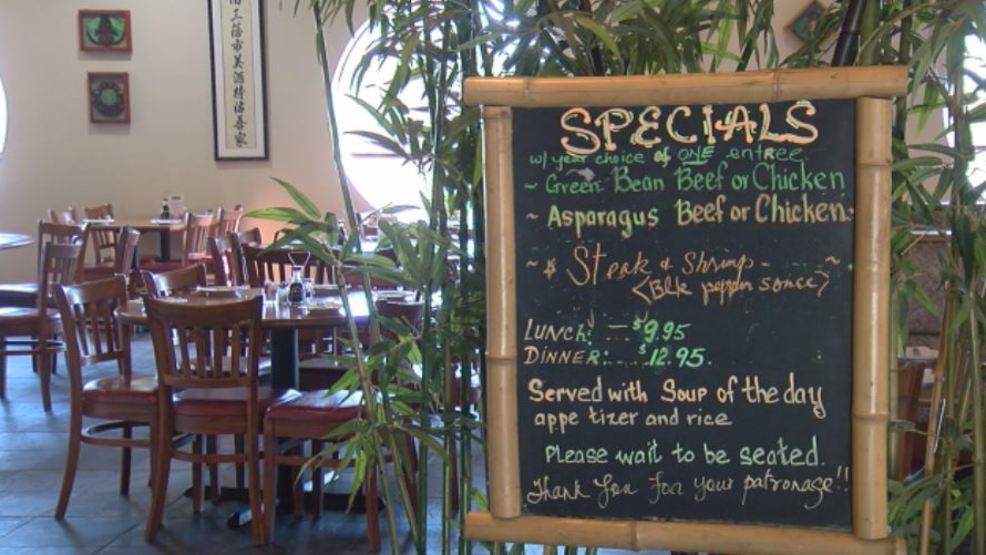 市美酒特谄吾家
SPECIALS
w/ your choice of ONE entree
~ Green Bean Beef or Chicken
~ Asparagus Beef or Chicken
~ $ Steak & Shrimp - ~
(Blk pepper sauce)
LUNCH: — $9.95
DINNER: ... $12.95
Served with Soup of the day
appetizer and rice
Please wait to be seated.
Thank You for Your patronage!!